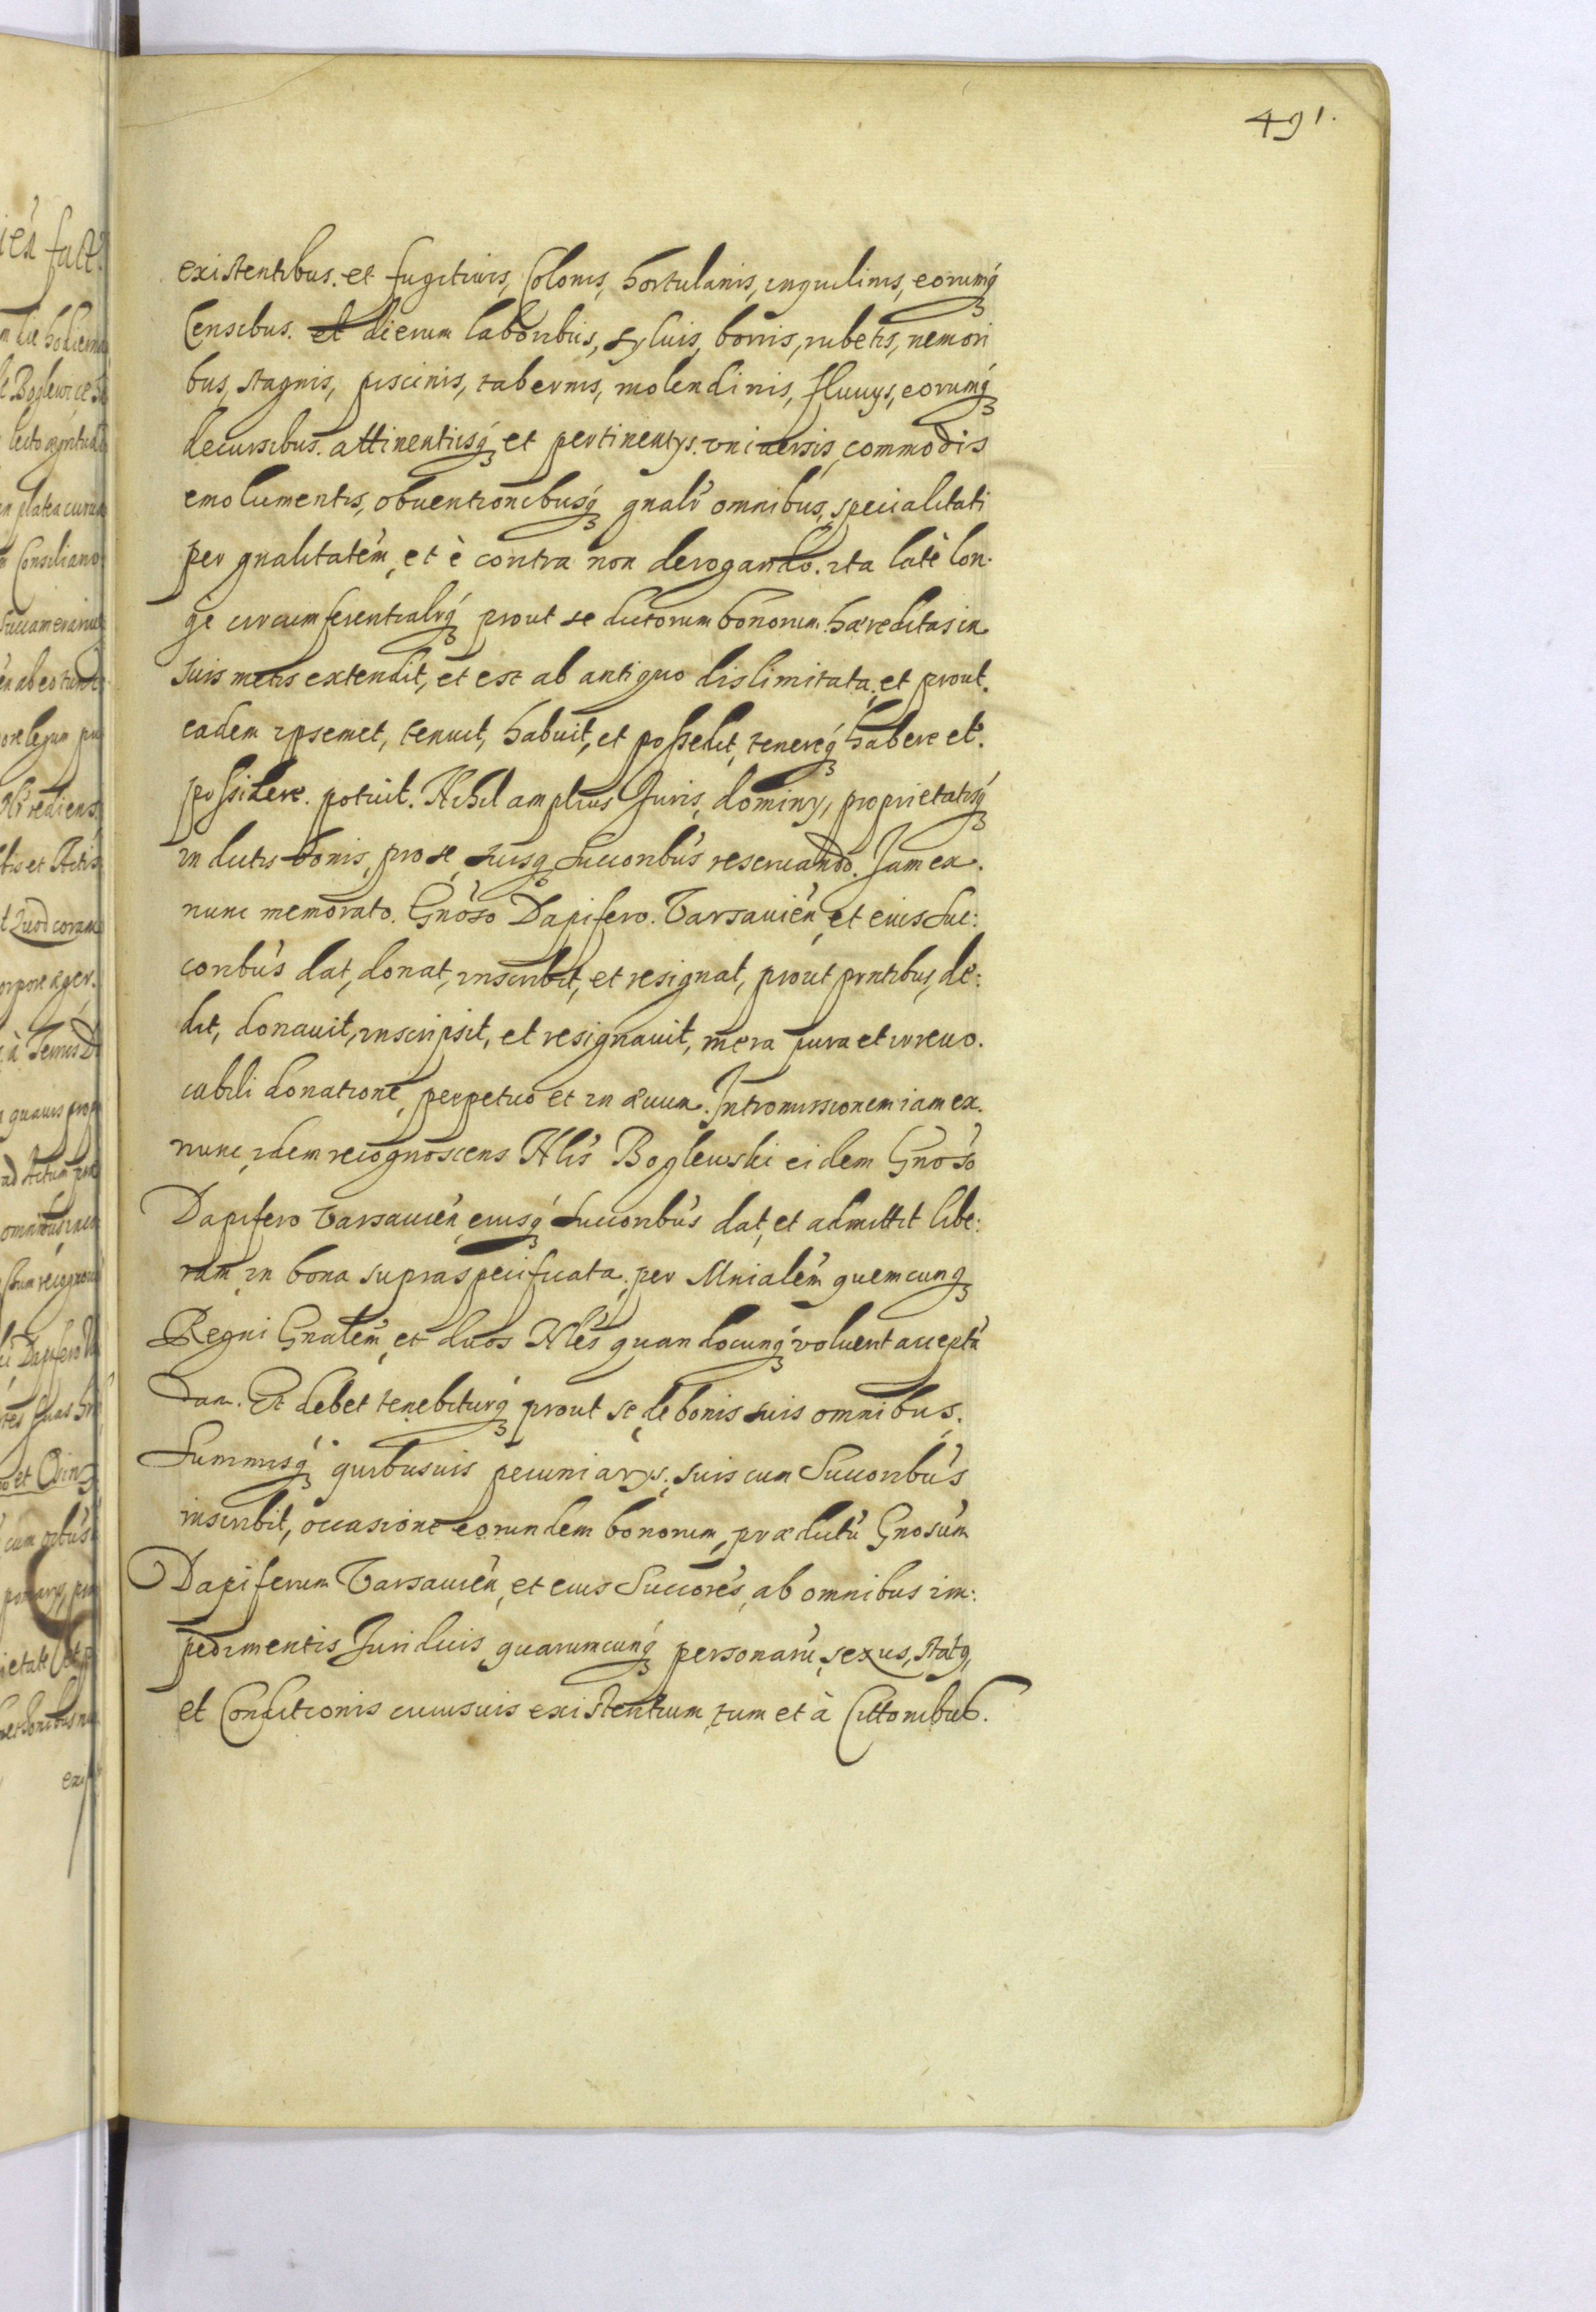 491.
existentibus. et fugitiuis, Colonis, hortulanis, inquilinis, eorumq3
Censibus. et dierum laboribus, syluis, borris, rubetis, nemori
bus, stagnis, piscinis, tabernis, molendinis, fluuys, eorumq3
decursibus. attinentiisq3 et pertinentys. vniuersis, commodis
emolumentis, obuentionibusq3 gnalr omnibus, specialitati
per gnalitatem, et è contra non derogando. ita latè lon.
ge circumferentialrq3 prout se dictorum bonorum. haereditas in
suis metis extendit, et est ab antiquo dislimitata, et prout.
eadem ipsemet, tenuit, habuit, et possedit, tenereq3 habere et.
possidere. potuit. Nihil amplius Juris, dominy, proprietatisq3
in dictis bonis, pro se, suisq3 Succoribus reseruando. Jam ex.
nunc memorato. Gnoso Dapifero. Varsauien, et eius Suc:
coribus dat, donat, inscribit, et resignat, prout pntibus, de:
dit, donauit, inscripsit, et resignauit, mera pura et irreuo.
cabili donatione, perpetuo et in aeuum. Intromissionem iam ex.
nunc, idem recognoscens Nlis Boglewski eidem Gnoso
Dapifero Varsauien, eiusq3 Succoribus dat, et admittit libe:
ram, in bona supraspecificata, per Mnialem quemcunq3
Regni Gnalem, et duos Nles quandocunq3 voluerit acceptã
dam. Et debet tenebiturq3 prout se, de bonis suis omnibus.
Summisq3 quibusuis pecuniarys, suis cum Succoribus
inscribit, occasione eorundem bonorum, praedictũ Gnosum
Dapiferum Varsauien, et eius Succores, ab omnibus im:
pedimentis Juridicis, quarumcunq3 personarũ, sexus, statq,
et Conditionis cuiusuis existentium, tum et à Cittonibus.